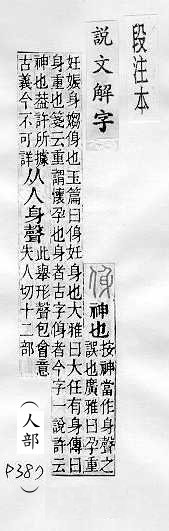 段注本
說文解字
㑗 神也 按神當作身聲之
誤也廣雅曰孕重
妊娠身㛛㑗也玉篇曰㑗妊身也大雅曰大任有身傳曰
身重也箋云重謂懷孕也身者古字㑗者今字一說許云
神也葢許所據
古義今不可詳 从人身聲 此舉形聲包會意
失人切十二部
(人部
P387)